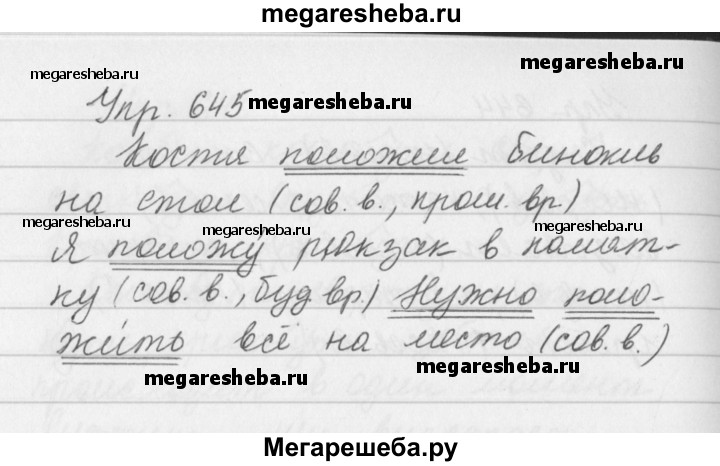 megaresheba.ru
megaresheba.ru
megaresheba.ru
Упр. 645 megaresheba.ru
Костя положил бинокль
на стол (сов. в., прош. вр.)
megaresheba.ru
megaresheba.ru
Я положу́ рюкзак в палат-
ку (сов. в., буд вр.) Нужно поло-
жи́ть всё на место (сов. в.)
megaresheba.ru
megaresheba.ru
Мегарешеба.ру